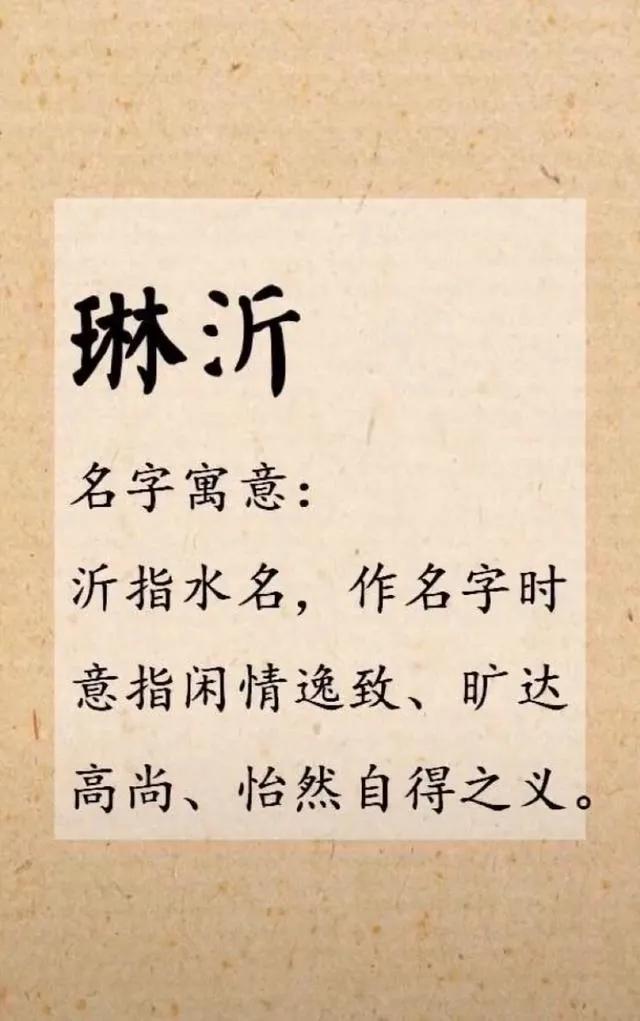 琳沂
名字寓意：
沂指水名，作名字时
意指闲情逸致、旷达
高尚、怡然自得之义。